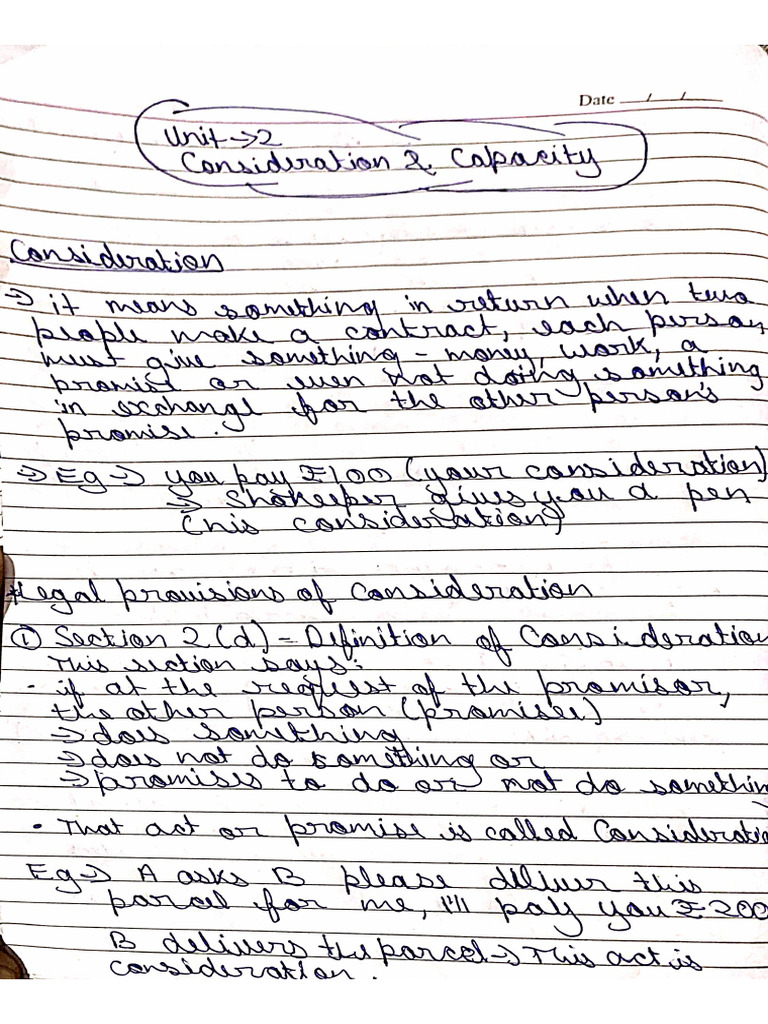 Date __/__/__
Unit → 2
Consideration & Capacity
Consideration
→ it means something in return when two
people make a contract, each person
must give something - money, work, a
promise or even not doing something
in exchange for the other person's
promise.
→ Eg → you pay ₹100 (your consideration)
→ Shokeeper gives you a pen
(his consideration)
*Legal provisions of Consideration
① Section 2(d) - Definition of Consideration
This section says:
· if at the request of the promisor,
the other person (promisee)
→ does something
→ does not do something or
→ promises to do or not do somethin
• That act or promise is called Considerati
Eg → A asks B please deliver this
parcel for me, I'll pay you ₹200
B delivers the parcel → This act is
consideration.